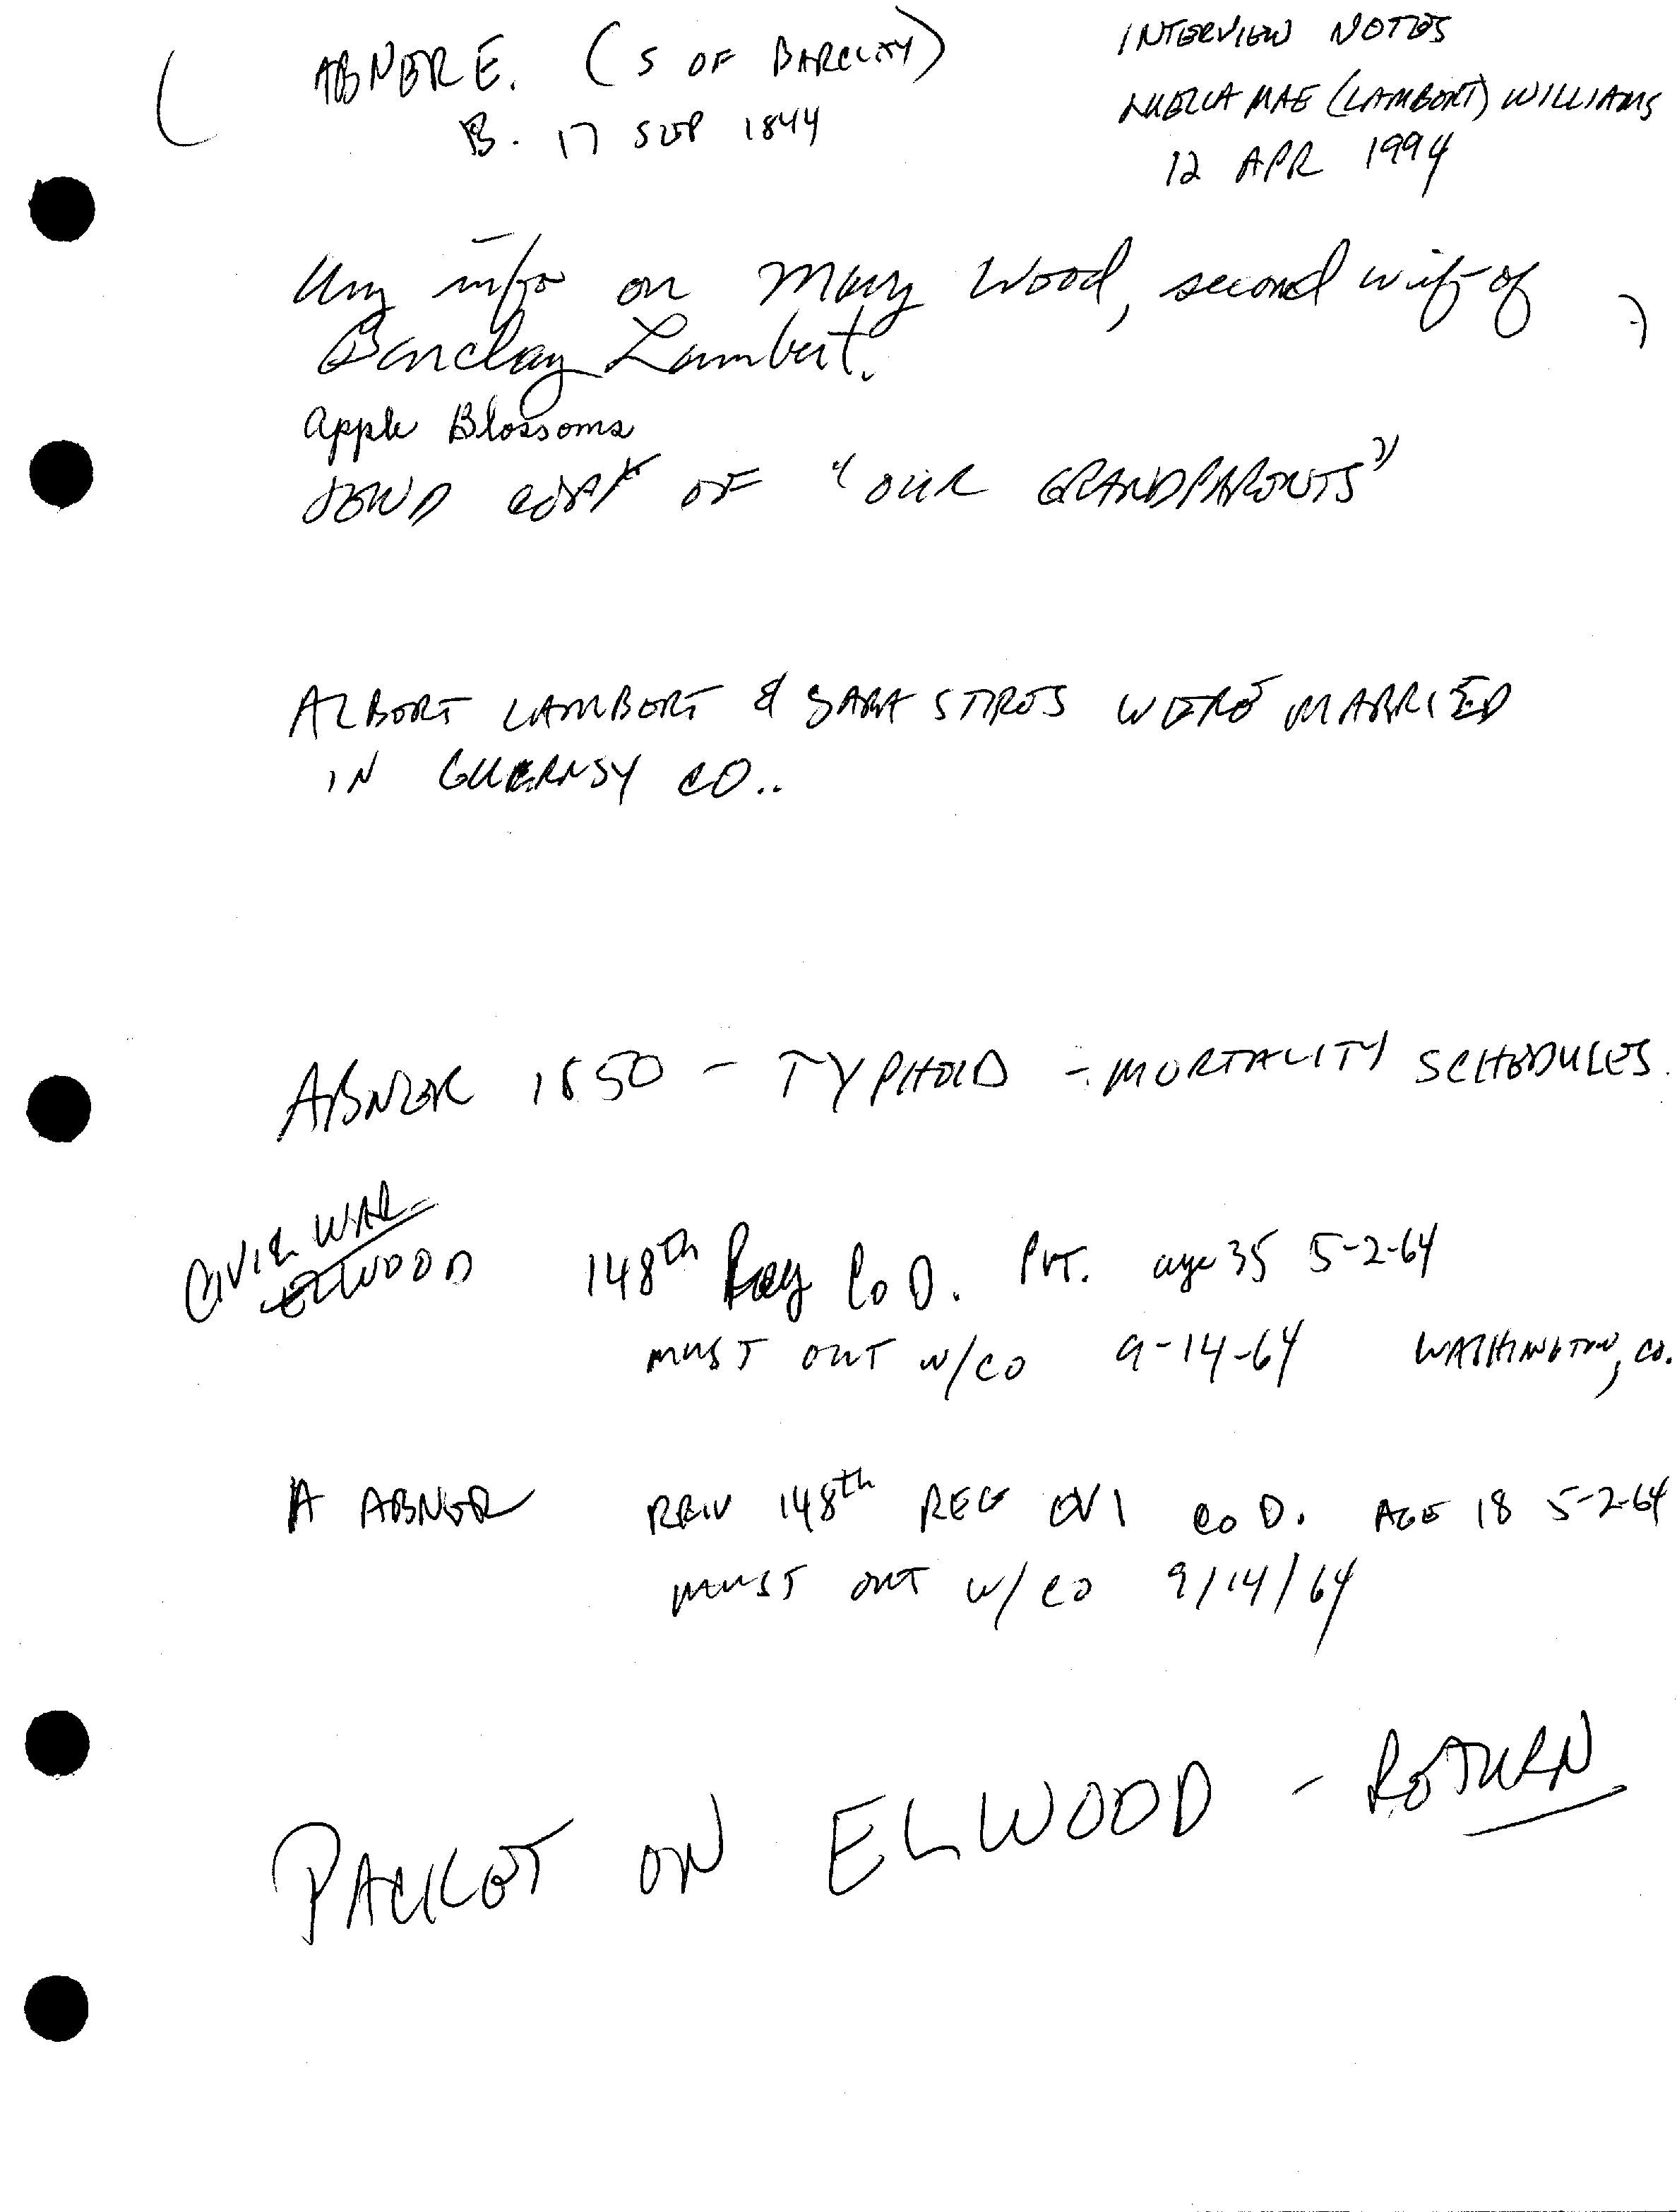 ABNER E. (S OF BARCLAY)
B. 17 SEP 1844
INTERVIEW NOTES
LUELLA MAE (LAMBERT) WILLIAMS
12 APR 1994
Any info on Mary Wood, second wife of
Barclay Lambert. ?
Apple Blossoms
SEND COPY OF "OUR GRANDPARENTS"
ALBERT LAMBERT & SARA STIRES WERE MARRIED
IN GUERNSY CO..
ABNER 1850 - TYPHOID - MORTALITY SCHEDULES.
CIVIL WAR
ELWOOD 148th Reg Co D. PVT. age 35 5-2-64
MUST OUT W/CO 9-14-64 WASHINGTON, CO.
A ABNER PRIV 148th REG OVI CO D. AGE 18 5-2-64
MUST OUT W/CO 9/14/64
PACKET ON ELWOOD - RETURN